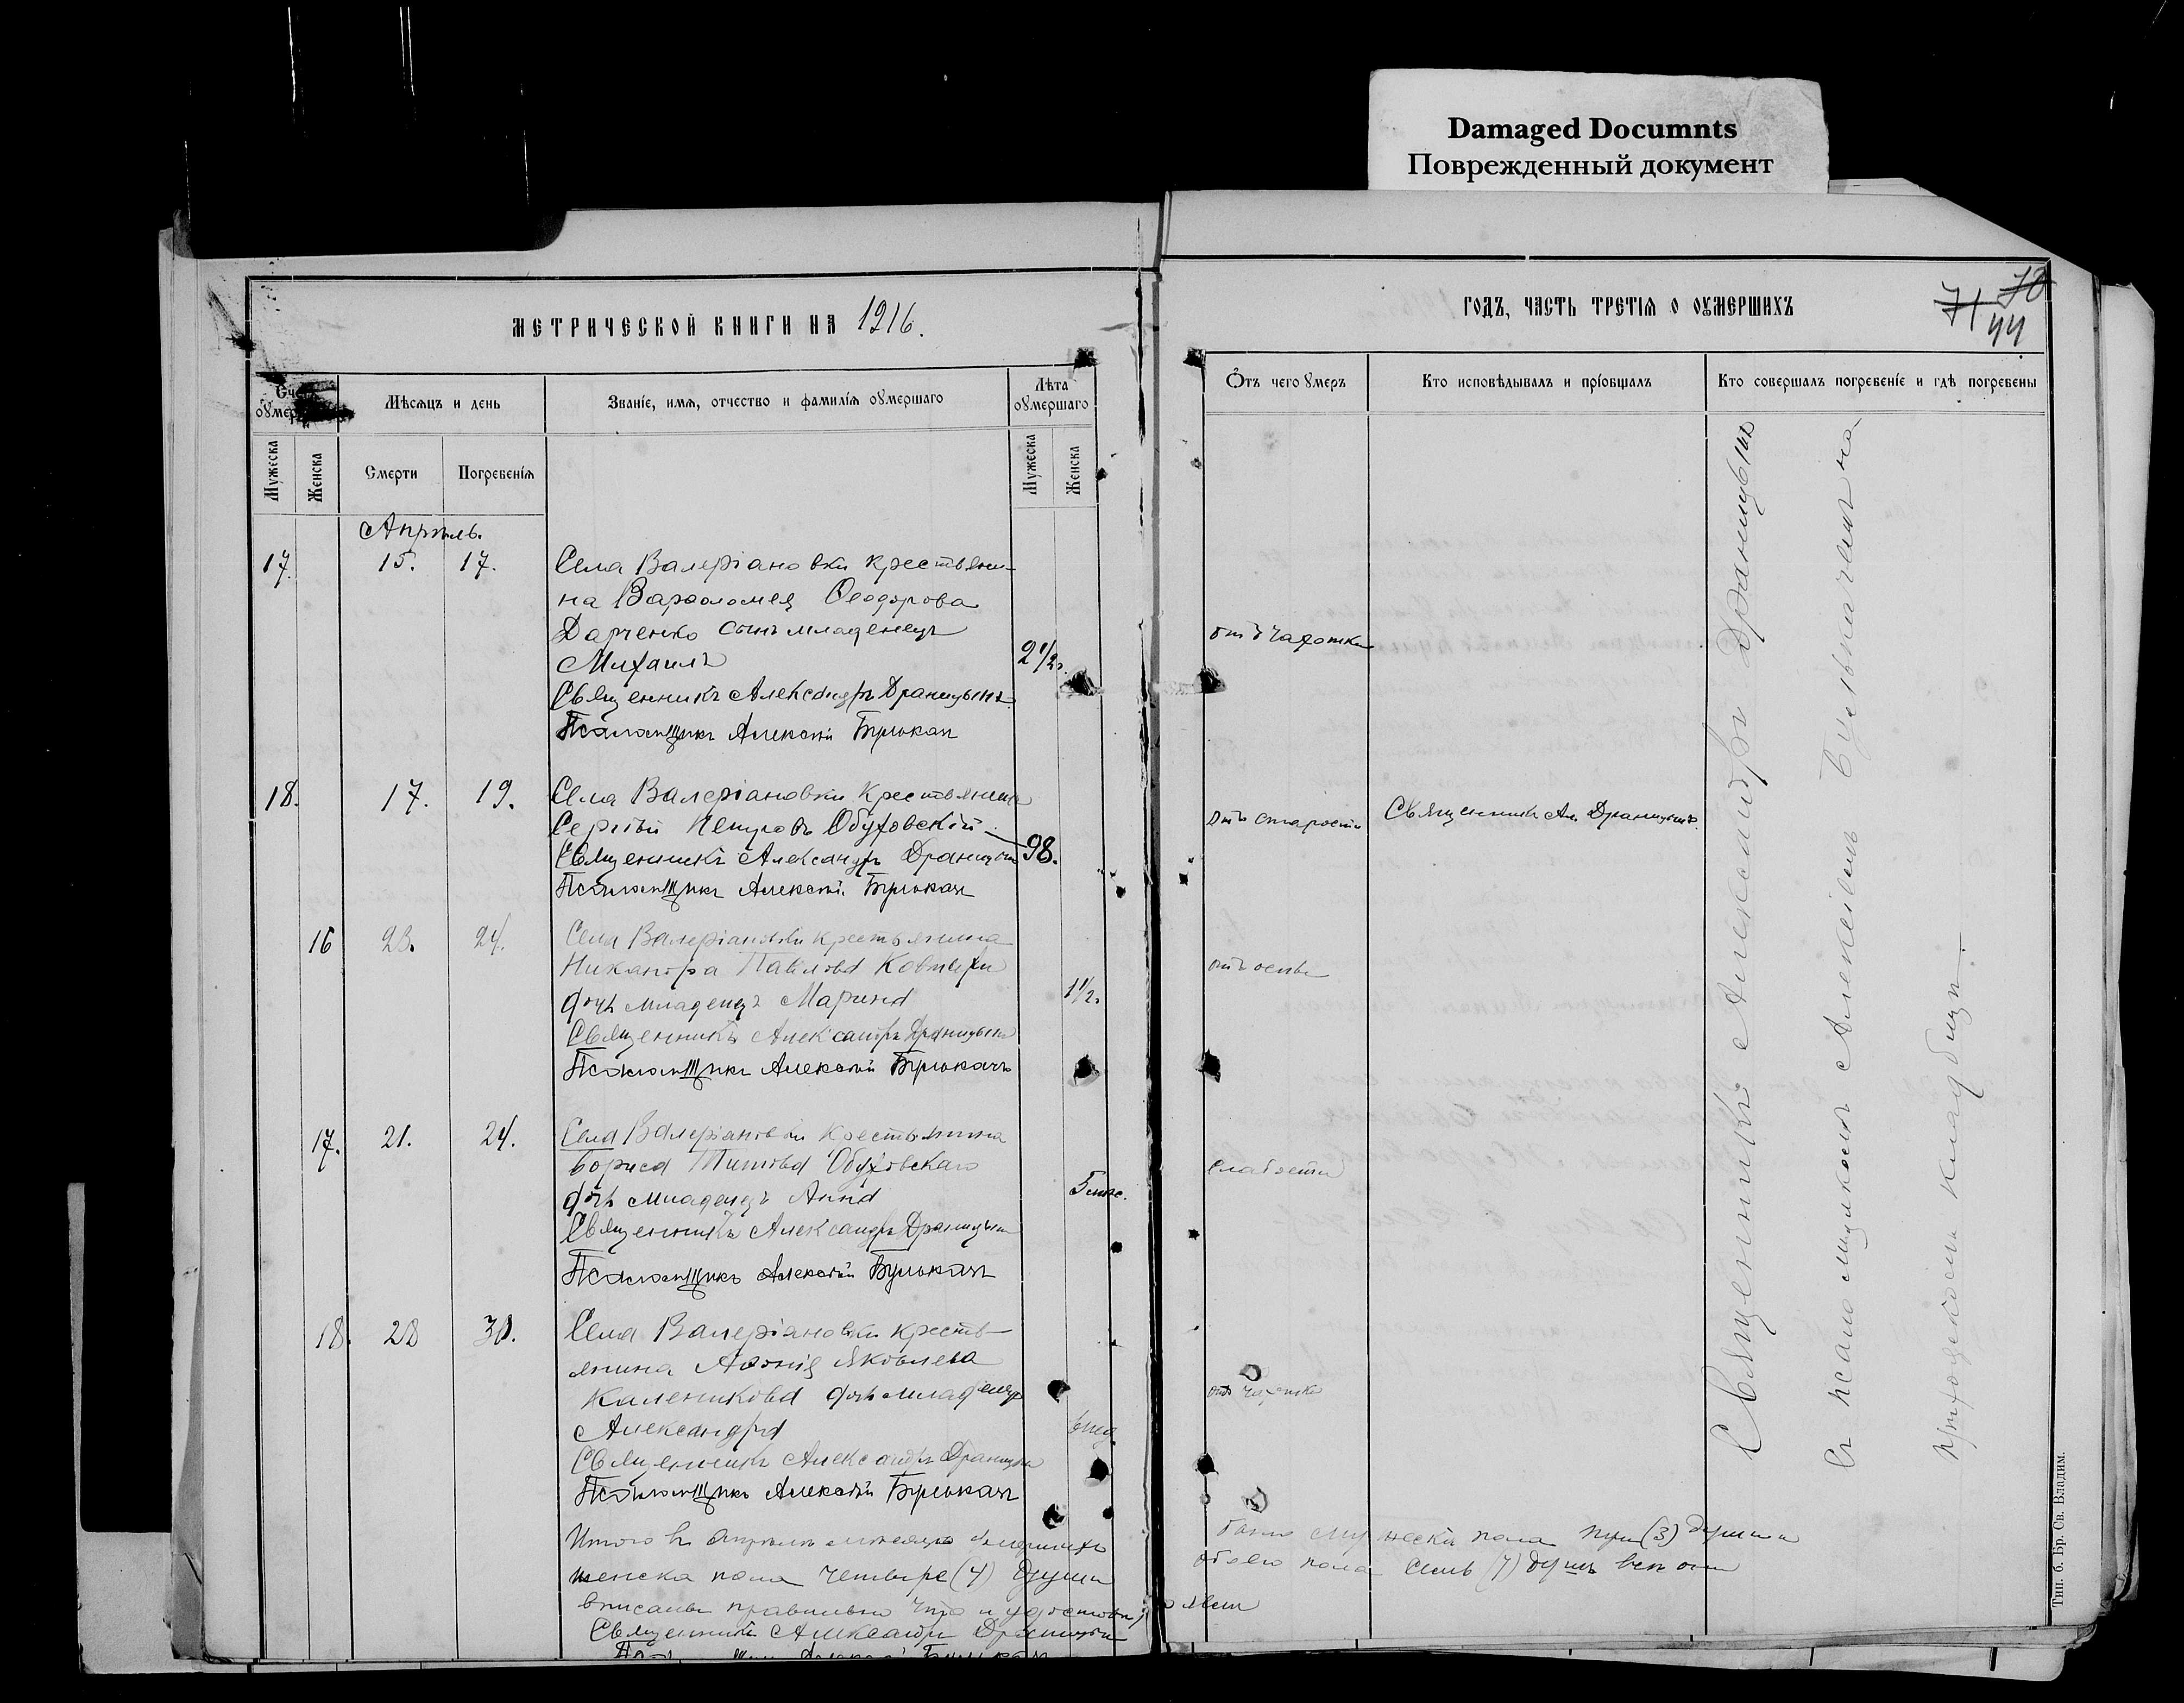 Damaged Documnts
Поврежденный документ
МЕТРИЧЕСКОЙ КНИГИ НА 1916.
ГОДЪ, ЧАСТЬ ТРЕТІЯ О ОУМЕРШИХЪ
71 70
44
Счетъ оумершихъ
Мѣсяцъ и день
Званіе, имя, отчество и фамилія оумершаго
Лѣта оумершаго
Отъ чего умеръ
Кто исповѣдывалъ и пріобщалъ
Кто совершалъ погребеніе и гдѣ погребены
Мужеска
Женска
Смерти
Погребенія
Мужеска
Женска
Апрѣль.
17. 15. 17. Села Валеріановки крестьяни-
на Варфоломея Ѳеодорова
Дарченко сынъ младенецъ
Михаилъ 2 1/2. отъ чахотки
Священникъ Александръ Драницынъ
Псаломщикъ Алексѣй Булькач
18. 17. 19. Села Валеріановки крестьянинъ
Сергѣй Петровъ Обуховскій 98. отъ старости Священникъ Ал. Драницынъ
Священникъ Александръ Драницын
Псаломщикъ Алексѣй Булькач
16 23. 24. Села Валеріановки крестьянина
Никанора Павлова
дочь младенецъ Марина 1 1/2. отъ оспы
Священникъ Александръ Драницынъ
Псаломщикъ Алексѣй Булькачъ
17. 21. 24. Села Валеріановки крестьянина
Бориса Титова Обуховскаго слабости
дочь младенецъ Анна 5 мѣс.
Священникъ Александръ Драницын
Псаломщикъ Алексѣй Булькач
18. 28 30. Села Валеріановки кресть-
янина Яковлева
Каленикова дочь младенецъ отъ
Александра
Священникъ Александръ Драницын
Псаломщикъ Алексѣй Булькач
Итого въ Апрѣлѣ мѣсяцѣ умершихъ было мужеска пола три (3) души
женска пола четыре (4) души обоего пола семь (7) душъ всѣ они
вписаны правильно что и удостовѣряемъ
Священникъ Александръ Драницын
Псаломщикъ Алексѣй Булькач
Священникъ Александръ Драницынъ
съ псаломщикомъ Алексѣемъ Булькачемъ на
приходскомъ кладбищѣ
Тип. б. Бр. Св. Владим.